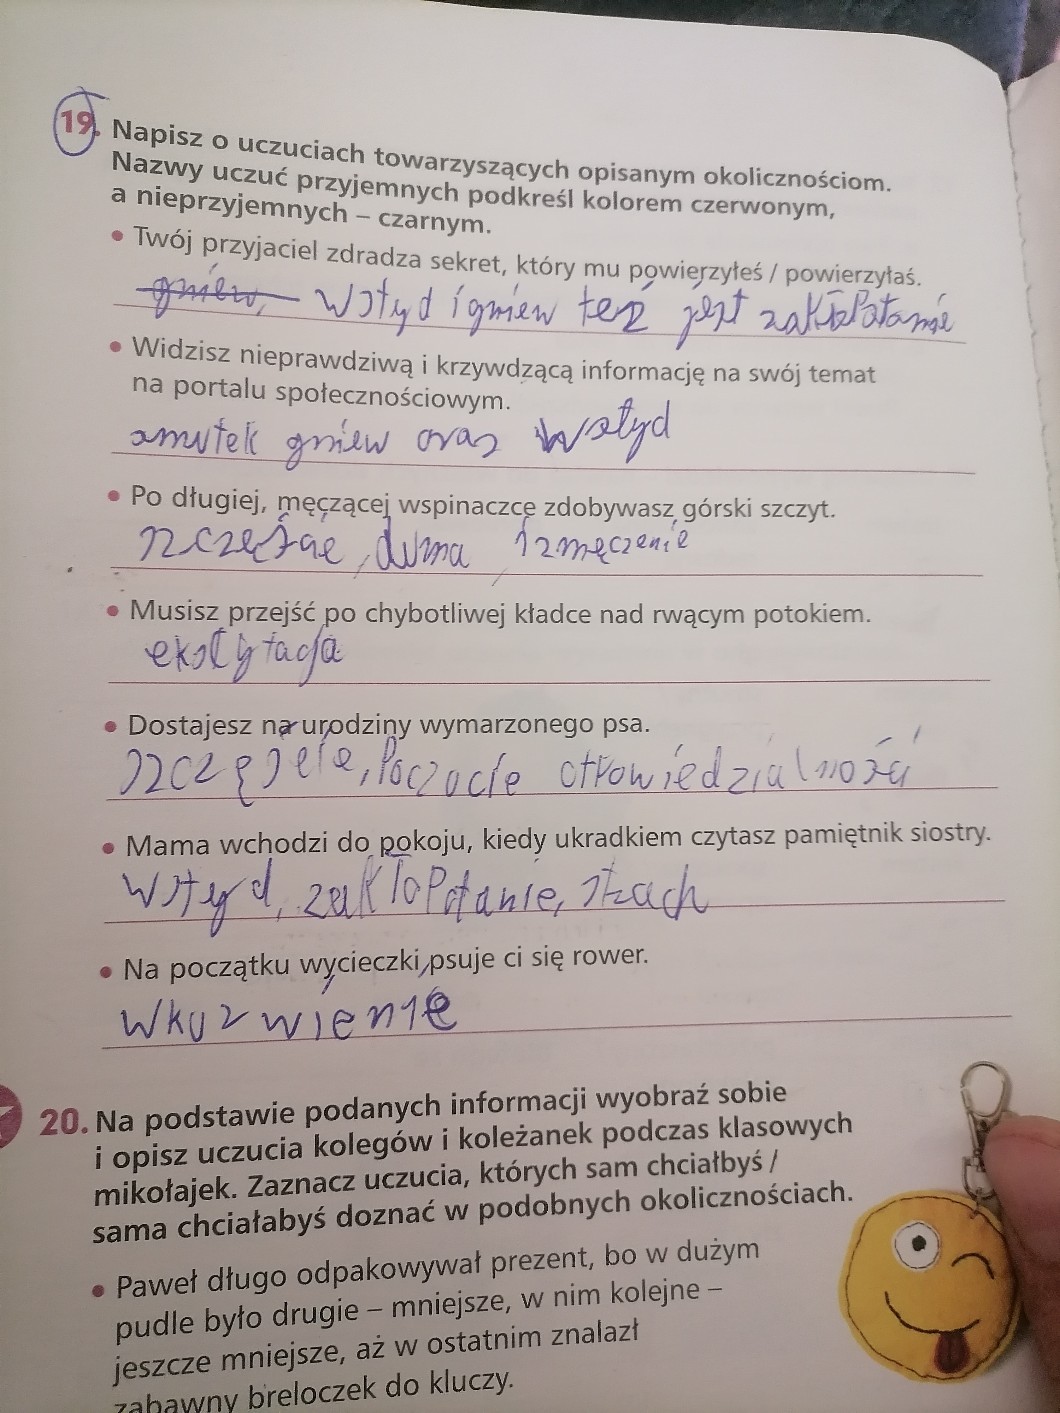 19. Napisz o uczuciach towarzyszących opisanym okolicznościom.
Nazwy uczuć przyjemnych podkreśl kolorem czerwonym,
a nieprzyjemnych – czarnym.
• Twój przyjaciel zdradza sekret, który mu powierzyłeś / powierzyłaś.
gniew, Wstyd i gniew też jest zakłopotanie
• Widzisz nieprawdziwą i krzywdzącą informację na swój temat
na portalu społecznościowym.
smutek gniew oraz Wstyd
• Po długiej, męczącej wspinaczce zdobywasz górski szczyt.
szczęście, duma, i zmęczenie
• Musisz przejść po chybotliwej kładce nad rwącym potokiem.
ekscytacja
• Dostajesz na urodziny wymarzonego psa.
szczęście, Poczucie otpowiedzialności
• Mama wchodzi do pokoju, kiedy ukradkiem czytasz pamiętnik siostry.
Wstyd, zakłoPotanie, strach
• Na początku wycieczki psuje ci się rower.
Wkurwienie
20. Na podstawie podanych informacji wyobraź sobie
i opisz uczucia kolegów i koleżanek podczas klasowych
mikołajek. Zaznacz uczucia, których sam chciałbyś /
sama chciałabyś doznać w podobnych okolicznościach.
• Paweł długo odpakowywał prezent, bo w dużym
pudle było drugie – mniejsze, w nim kolejne –
jeszcze mniejsze, aż w ostatnim znalazł
zabawny breloczek do kluczy.